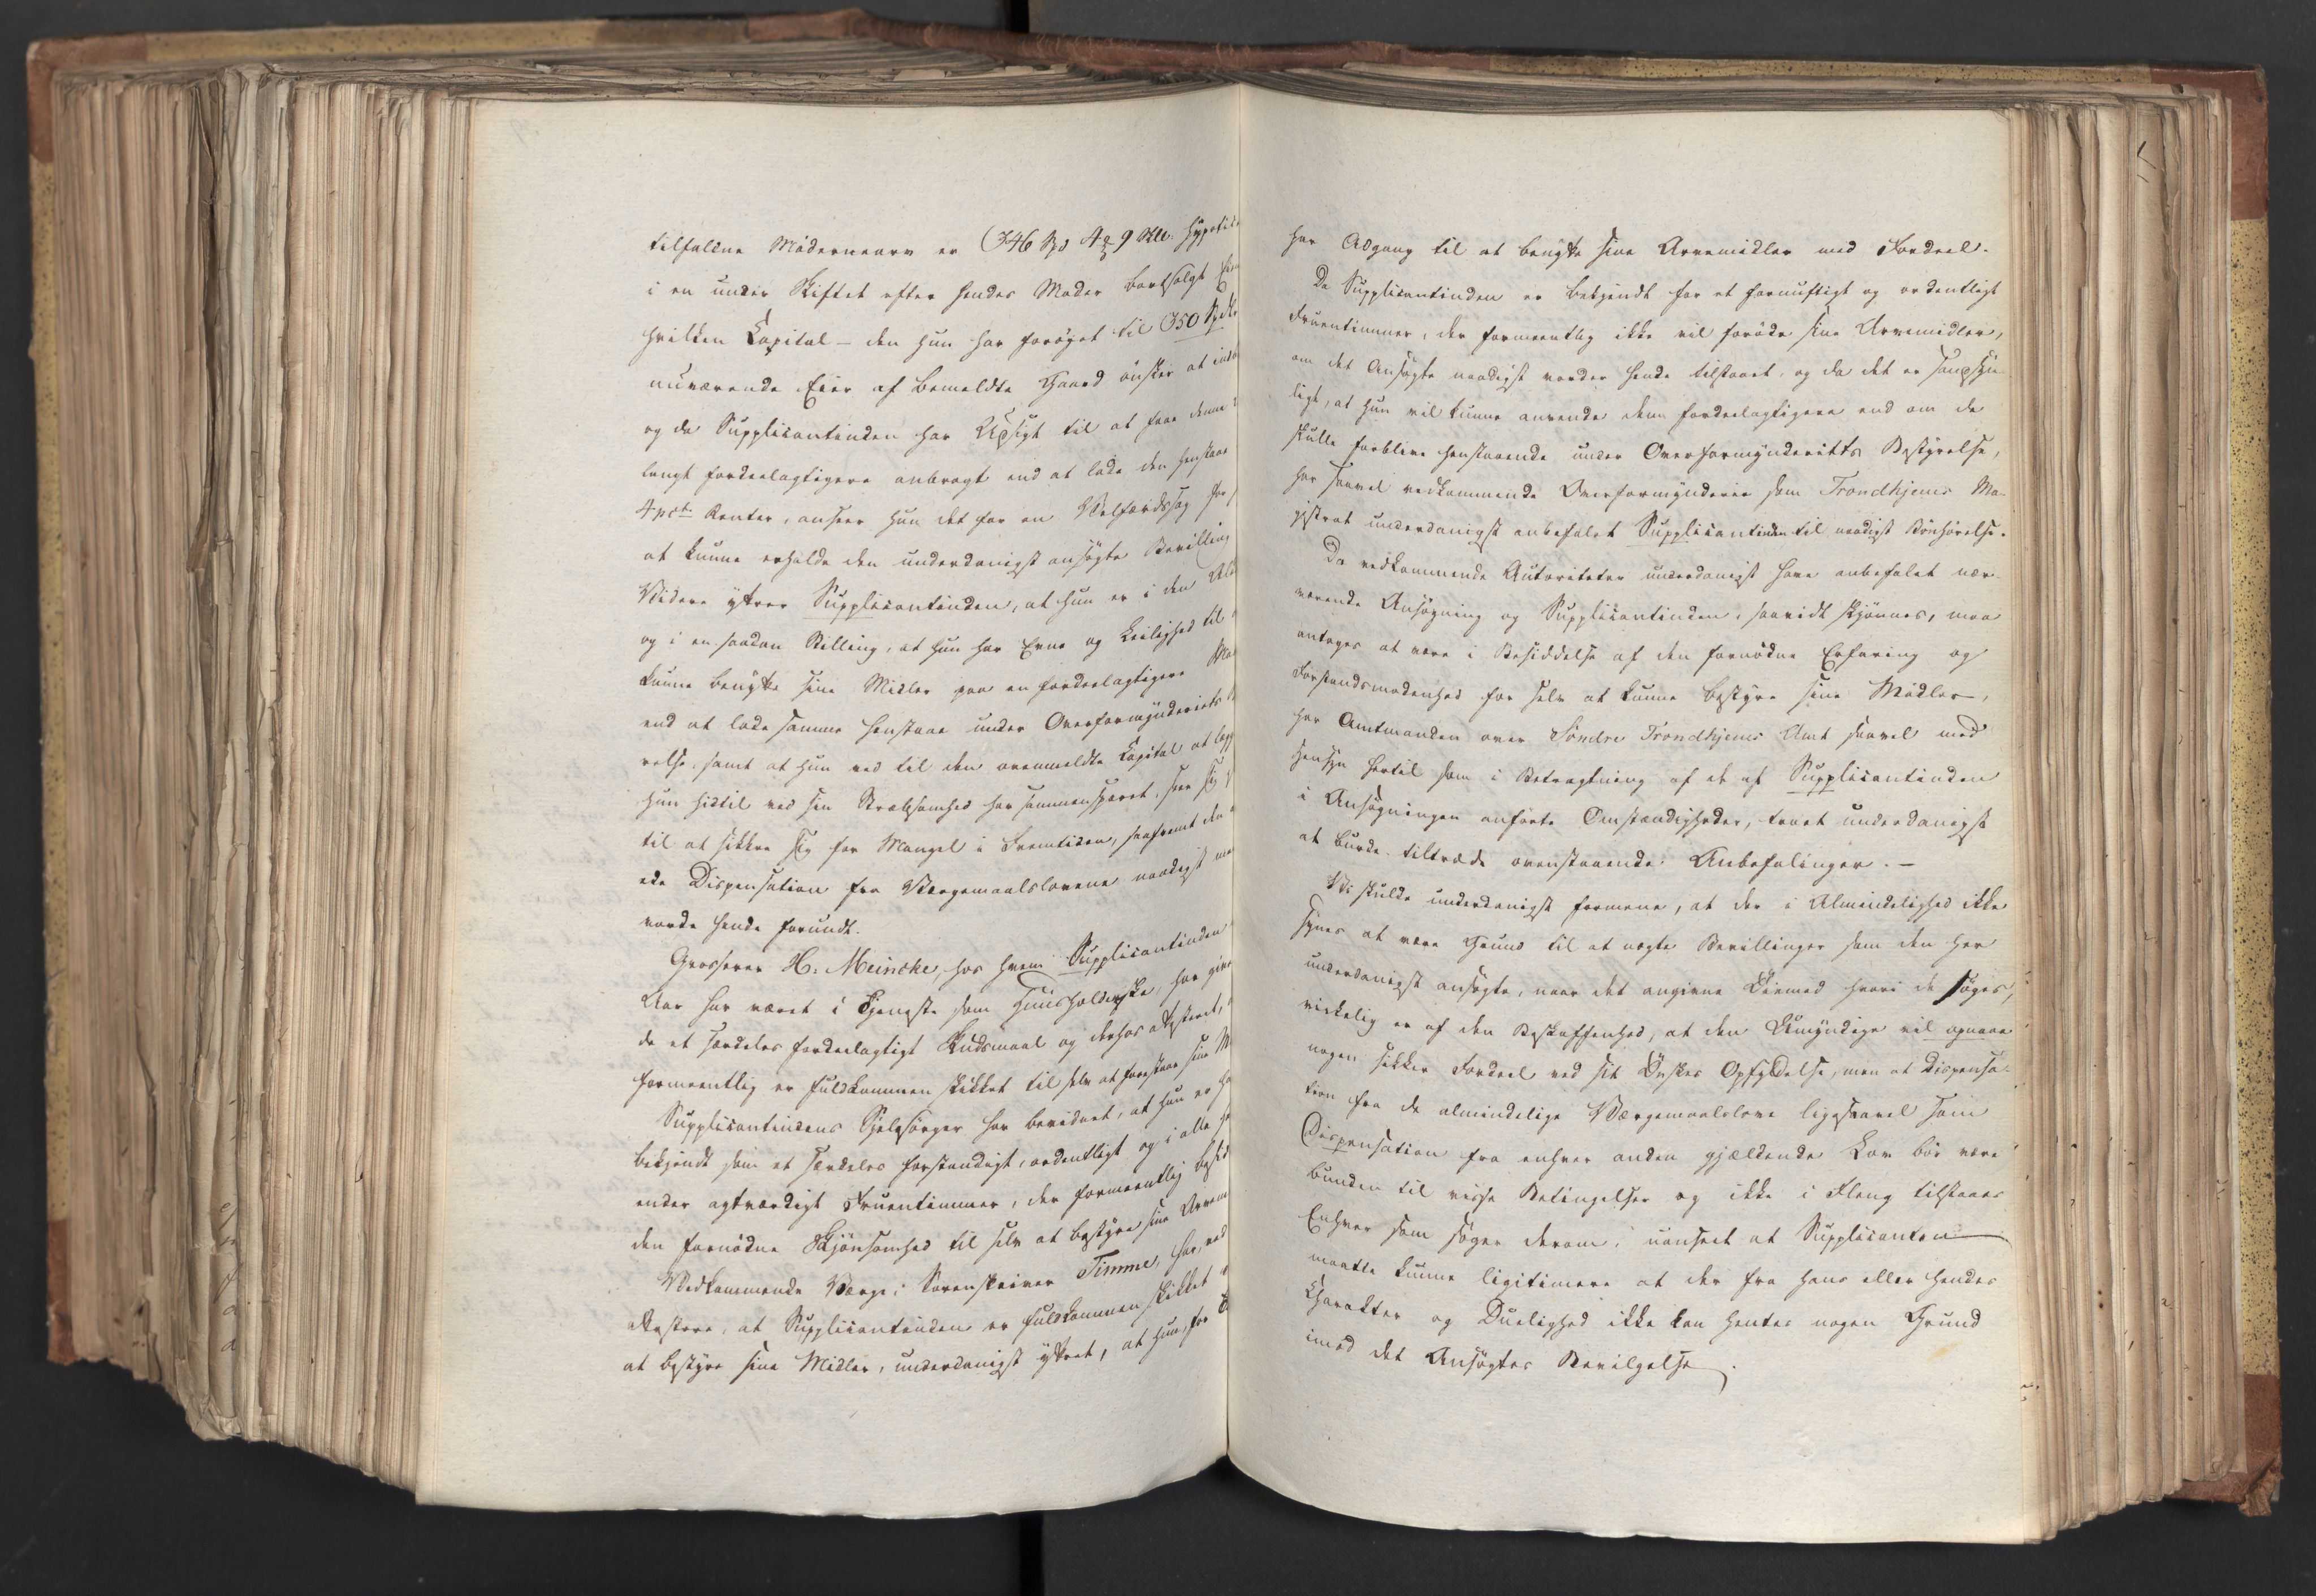 tilfaldne Mødrenearv er (346 Spd 4 ß 9 Kll. hypothe
i en under Skiftet efter hendes Moder bortsolgt
hvilken Capital – den hun har forøget til 350 Spdlr
nuværende Eier af bemeldte Gaard ønsker at ind
og da Supplicantinden har Udsigt til at faae denne
langt fordeelagtigere anbragt end at lade den henstaae
4 pct. Renter, anseer hun det for en Velfærdssag for
at kunne erholde den underdanigst ansøgte Bevilling
Videre yttrer Supplicantinden, at hun er i den Al
og i en saadan Stilling, at hun har Evne og Leilighed til
kunne benytte sine Midler paa en fordeelagtigere Maa
end at lade samme henstaae under Overformynderiets
relse, samt at hun ved til den ovenmeldte Capital at læg
hun hidtil ved sin Stræbsomhed har sammensparet, seer sig
til at sikkre sig for Mangel i Fremtiden, saafremt den
ede Dispensation fra Værgemaalslovene naadigst maa
vorde hende forundt.
Grosserer H. Meincke, hos hvem Supplicantinden
Aar har været i Tjeneste som Huusholderske, har giv
de et særdeles fordeelagtigt Skudsmaal og derhos attesteret,
formeentlig er fuldkommen skikket til selv at forestaae sine M
Supplicantindens Sjelesørger har bevidnet, at hun er h
bekjendt som et særdeles forstandigt, ordentligt og i alle H
ender agtværdigt Fruentimmer, der formeentlig besid
den fornødne Skjønsomhed til selv at bestyre sine Arvem
Vedkommende Værge, Sorenskriver Timme, har, ved
attestere, at Supplicantinden er fuldkommen skikket
at bestyre sine Midler, underdanigst yttret, at hun, for
har Adgang til at benytte sine Arvemidler med Fordeel.
Da Supplicantinden er bekjendt for et fornuftigt og ordentligt
Fruentimmer, der formeentlig ikke vil forøde sine Arvemidler,
om det Ansøgte naadigst vorder hende tilstaaet, og da det er sandsyn
ligt, at hun vil kunne anvende dem fordeelagtigere end om de
skulle forblive henstaaende under Overformynderiets Bestyrelse,
har saavel vedkommende Overformynderie som Trondhjems Ma-
gistrat underdanigst anbefalet Supplicantinden til naadigst Bønhørelse.
Da vedkommende Autoriteter underdanigst have anbefalet nær-
værende Ansøgning og Supplicantinden, saavidt skjønnes, maa
antages at være i Besiddelse af den fornødne Erfaring og
Forstandsmodenhed for selv at kunne bestyre sine Midler,
har Amtmanden over Søndre Trondhjems Amt saavel med
Hensyn hertil som i Betragtning af de af Supplicantinden
i Ansøgningen anførte Omstændigheder, troet underdanigst
at burde tiltræde ovenstaaende Anbefalinger. –
Vi skulde underdanigst formene, at der i Almindelighed ikke
synes at være Grund til at nægte Bevillinger som den her
underdanigst ansøgte, naar det angivne Øiemed hvori de søges,
virkelig er af den Beskaffenhed, at den Umyndige vil opnaae
nogen sikker Fordeel ved sit Ønskes Opfyldelse, men at Dispensa-
tion fra de almindelige Værgemaalslove ligesaavel som
Dispensation fra enhver anden gjældende Lov bør være
bunden til visse Betingelser og ikke i Fleng tilstaaes
Enhver som søger derom, uanseet at Supplicanten
maatte kunne ligitimere at der fra hans eller hendes
Charakter og Duelighed ikke kan hentes nogen Grund
imod det Ansøgtes Bevilgelse.